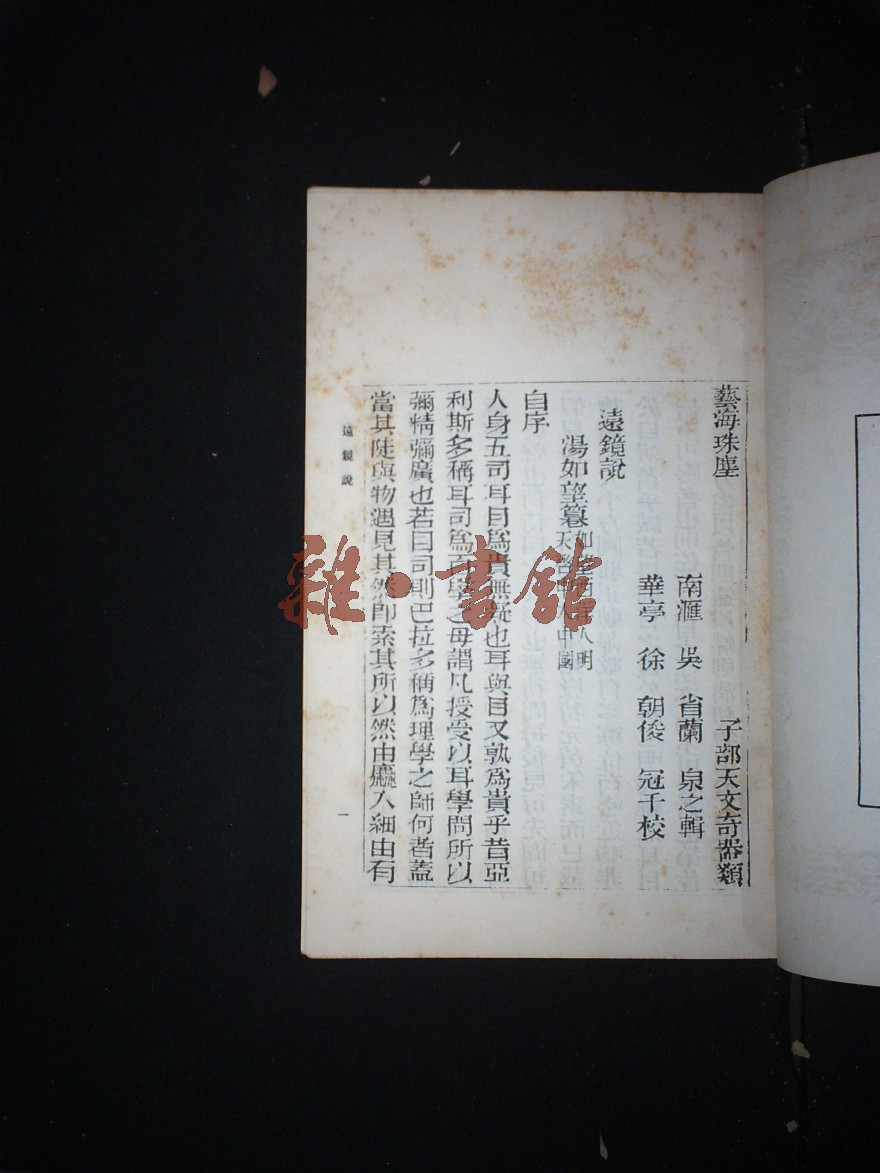 藝海珠塵 子部天文奇器類
南滙 吳省蘭 泉之輯
華亭 徐朝俊 冠千校
遠鏡說
湯如望纂
自序
人身五司耳目爲貴無疑也耳與目又孰爲貴乎昔亞
利斯多稱耳司爲百學之母謂凡授受以耳學問所以
彌精彌廣也若目司則巴拉多稱爲理學之師何者蓋
當其陡與物遇見其然卽索其所以然由麤入細由有
遠鏡說
一
雜·書館